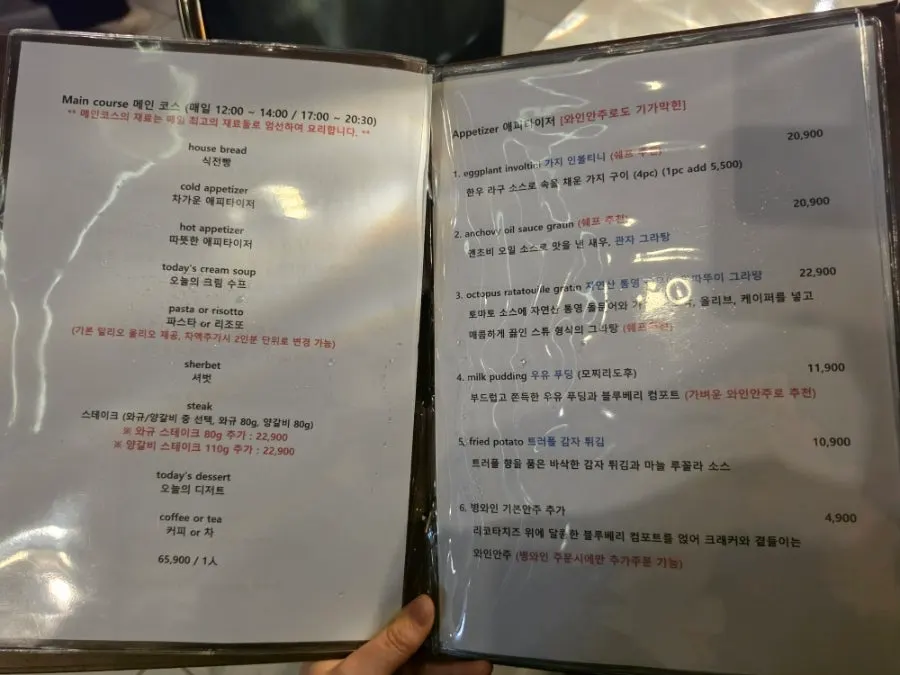 Main course 메인 코스 (매일 12:00 ~ 14:00 / 17:00 ~ 20:30)
** 메인코스의 재료는 매일 최고의 재료들로 엄선하여 요리합니다. **
house bread
식전빵
cold appetizer
차가운 애피타이저
hot appetizer
따뜻한 애피타이저
today's cream soup
오늘의 크림 수프
pasta or risotto
파스타 or 리조또
(기본 알리오 올리오 제공, 차액추가시 2인분 단위로 변경 가능)
sherbet
셔벗
steak
스테이크 (와규/양갈비 중 선택, 와규 80g, 양갈비 80g)
※ 와규 스테이크 80g 추가 : 22,900
※ 양갈비 스테이크 110g 추가 : 22,900
today's dessert
오늘의 디저트
coffee or tea
커피 or 차
65,900 / 1人
Appetizer 애피타이저 [와인안주로도 기가막힌]
1. eggplant involtini 가지 인볼티니 (쉐프 추천) 20,900
한우 라구 소스로 속을 채운 가지 구이 (4pc) (1pc add 5,500)
2. anchovy oil sauce gratin (쉐프 추천) 20,900
엔초비 오일 소스로 맛을 낸 새우, 관자 그라탕
3. octopus ratatouille gratin 자연산 통영 그라탕 22,900
토마토 소스에 자연산 통영 돌문어와 올리브, 케이퍼를 넣고
매콤하게 끓인 스튜 형식의 그라탕 (쉐프추천)
4. milk pudding 우유 푸딩 (모찌리도후) 11,900
부드럽고 쫀득한 우유 푸딩과 블루베리 컴포트 (가벼운 와인안주로 추천)
5. fried potato 트러플 감자 튀김 10,900
트러플 향을 품은 바삭한 감자 튀김과 마늘 루꼴라 소스
6. 병와인 기본안주 추가 4,900
리코타치즈 위에 달콤한 블루베리 컴포트를 얹어 크래커와 곁들이는
와인안주 (병와인 주문시에만 추가주문 가능)